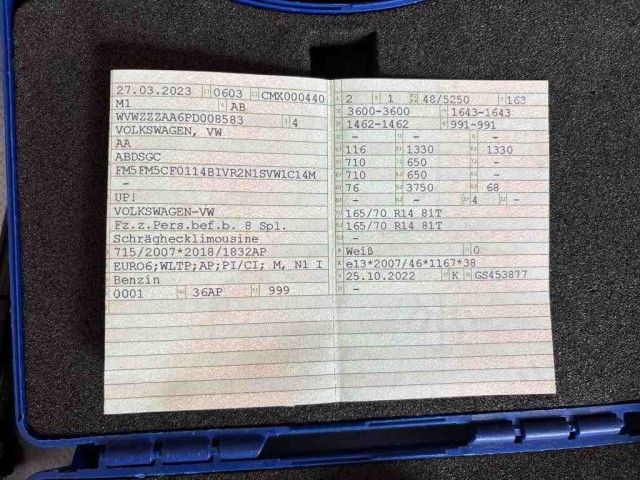 27.03.2023 0603 CMX000440
M1 AB
WVWZZZAA6PD008583 4
VOLKSWAGEN, VW
AA
ABDSGC
FM5FM5CF0114BIVR2N1SVW1C14M
-
UP!
VOLKSWAGEN-VW
Fz.z.Pers.bef.b. 8 Spl.
Schräghecklimousine
715/2007*2018/1832AP
EURO6;WLTP;AP;PI/CI; M, N1 I
Benzin
0001 36AP 999
2 1 48/5250 163
3600-3600 1643-1643
1462-1462 991-991
- - -
116 1330 1330
710 650 -
710 650 -
76 3750 68
- - 4 -
165/70 R14 81T
165/70 R14 81T
-
Weiß 0
e13*2007/46*1167*38
25.10.2022 K GS453877
-